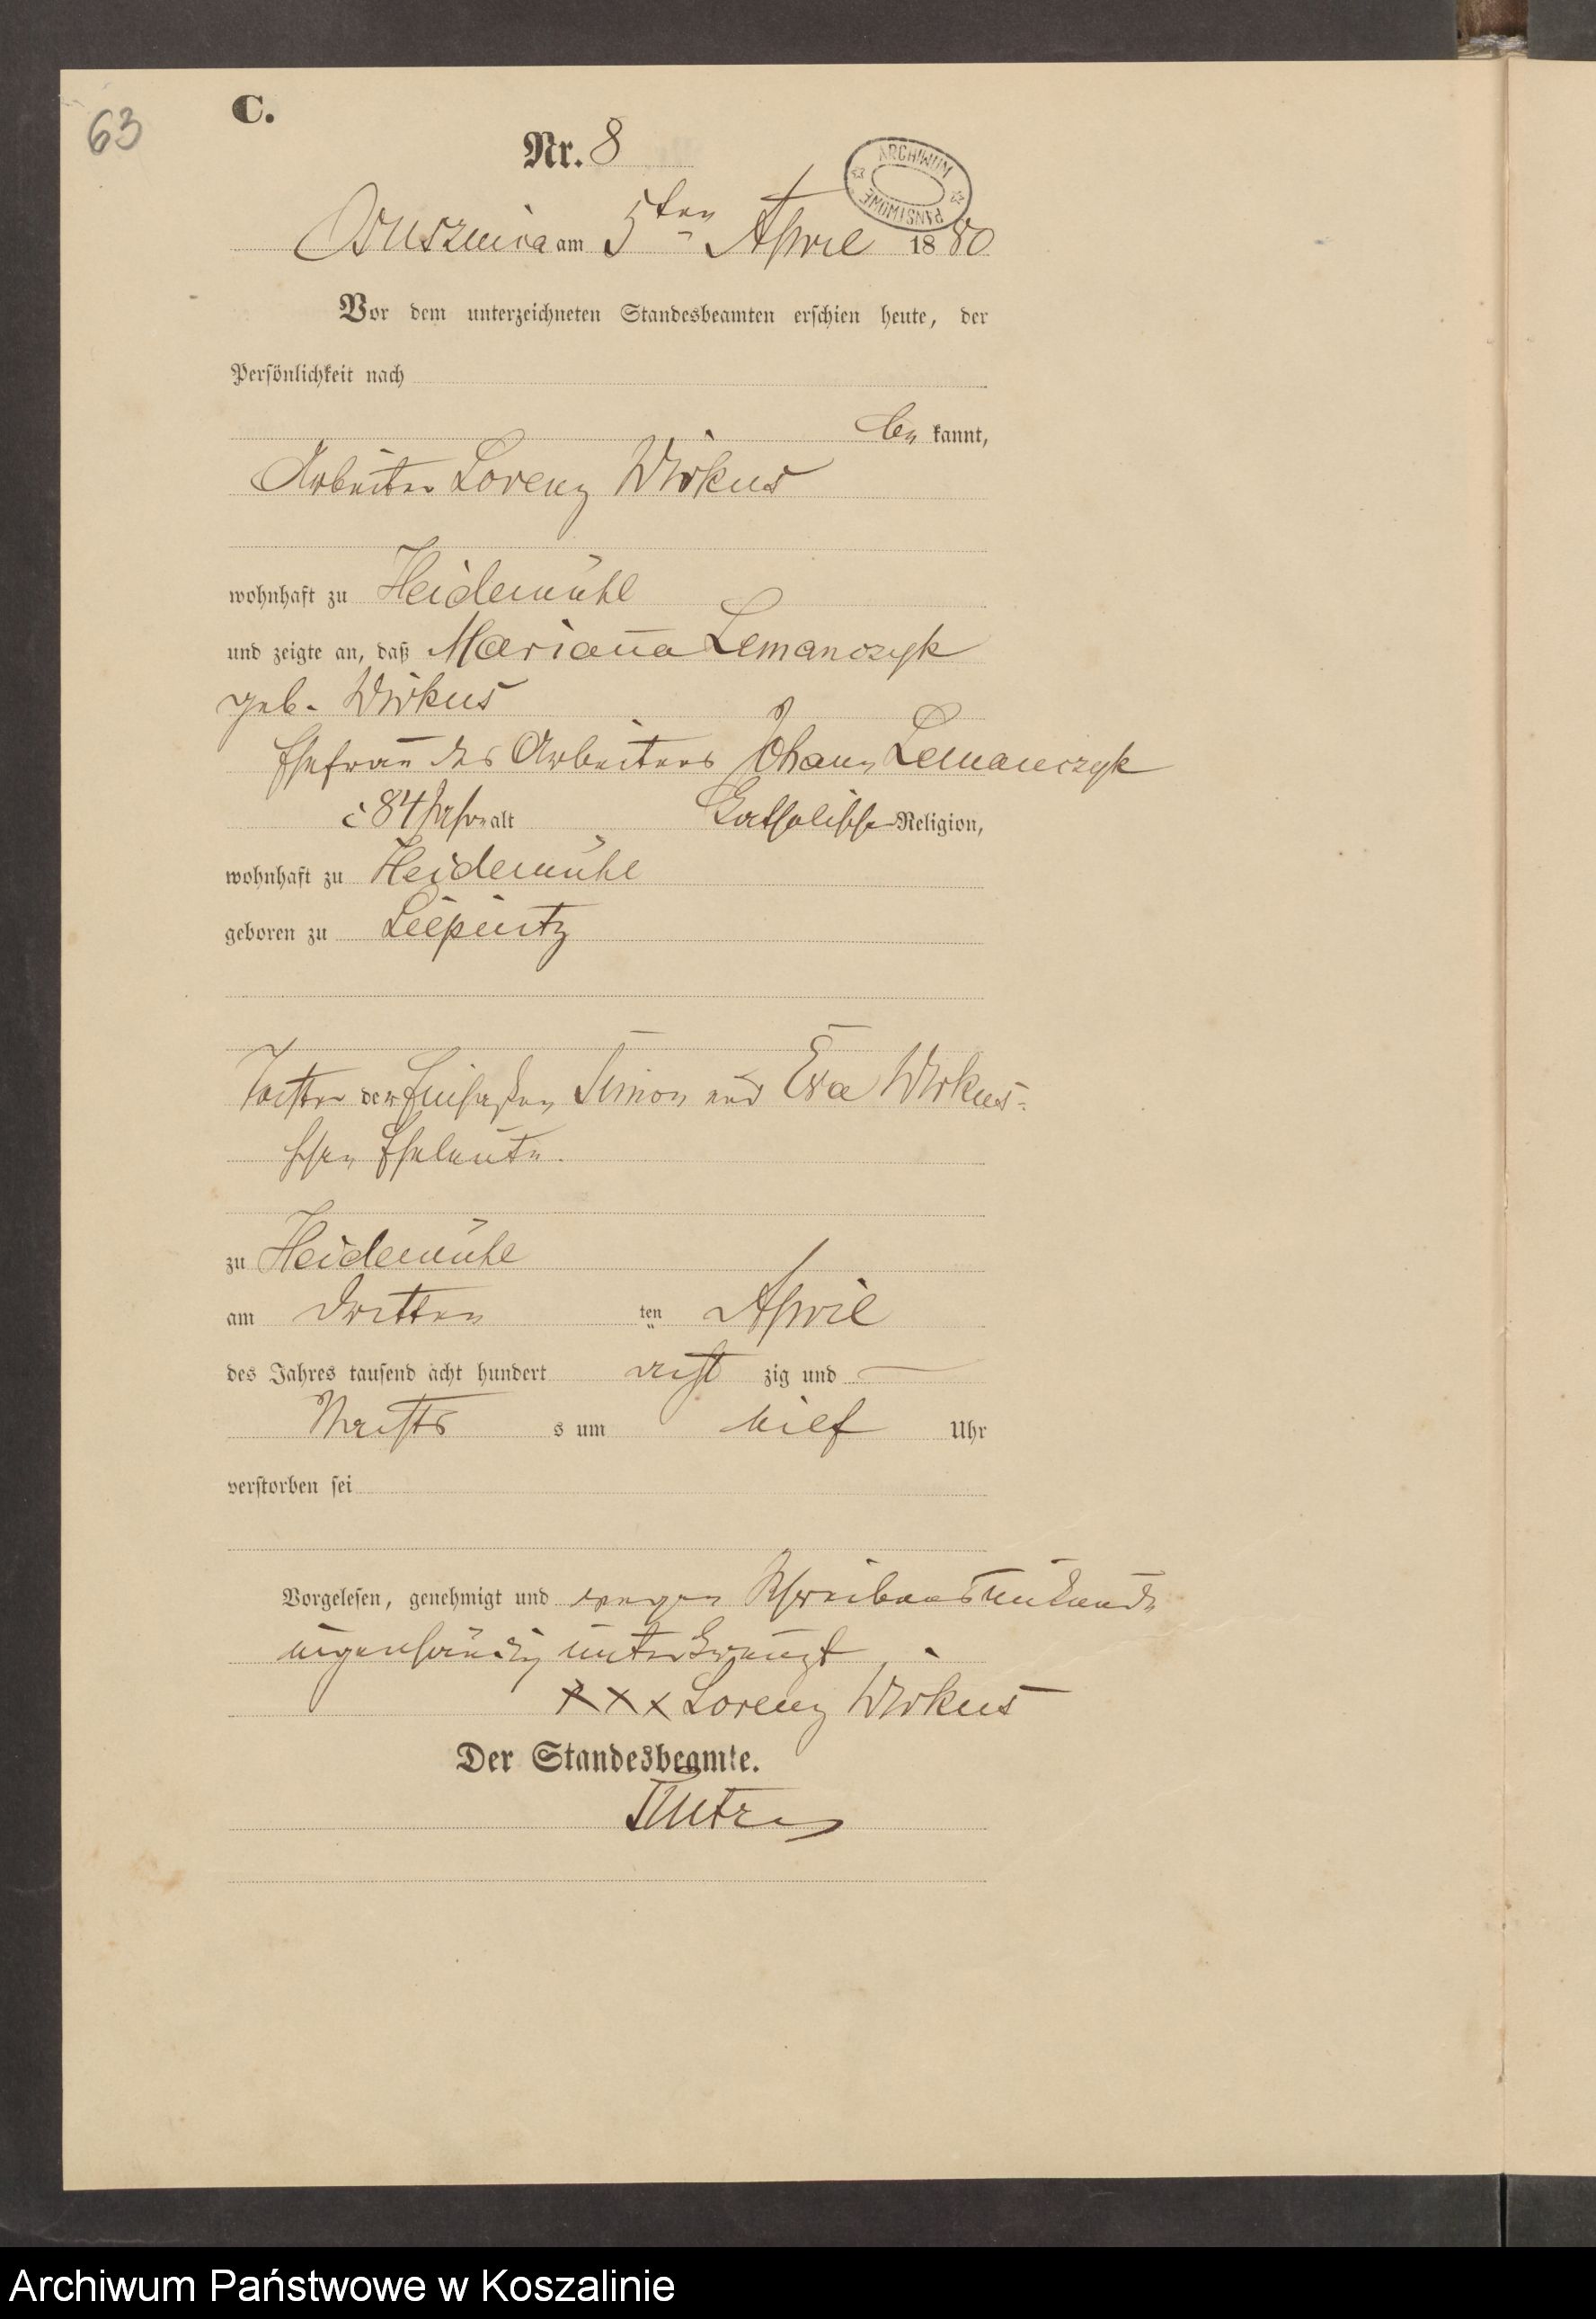 63
C.
Nr. 8
ARCHIWUM PAŃSTWOWE
Osusznica am 5ten April 1880
Vor dem unterzeichneten Standesbeamten erschien heute, der
Persönlichkeit nach
be kannt,
Arbeiter Lorenz Wirkus
wohnhaft zu Heidemühl
und zeigte an, daß Marianna Lemanczyk
geb. Wirkus
Ehefrau des Arbeiters Johann Lemanczyk
84 Jahr alt Katholischer Religion,
wohnhaft zu Heidemühl
geboren zu
Tochter der Simon und Eva Wirkus-
schen Eheleute.
zu Heidemühl
am dritten ten April
des Jahres tausend acht hundert acht zig und —
Nachts s um Uhr
verstorben sei
Vorgelesen, genehmigt und wegen Schreibensunkunde
eigenhändig unterkreuzt
XXX Lorenz Wirkus
Der Standesbeamte.
Archiwum Państwowe w Koszalinie